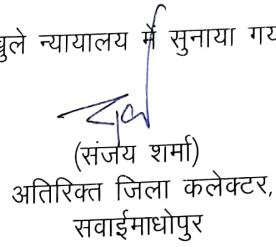 खुले न्यायालय में सुनाया गय
(संजय शर्मा)
अतिरिक्त जिला कलेक्टर,
सवाईमाधोपुर